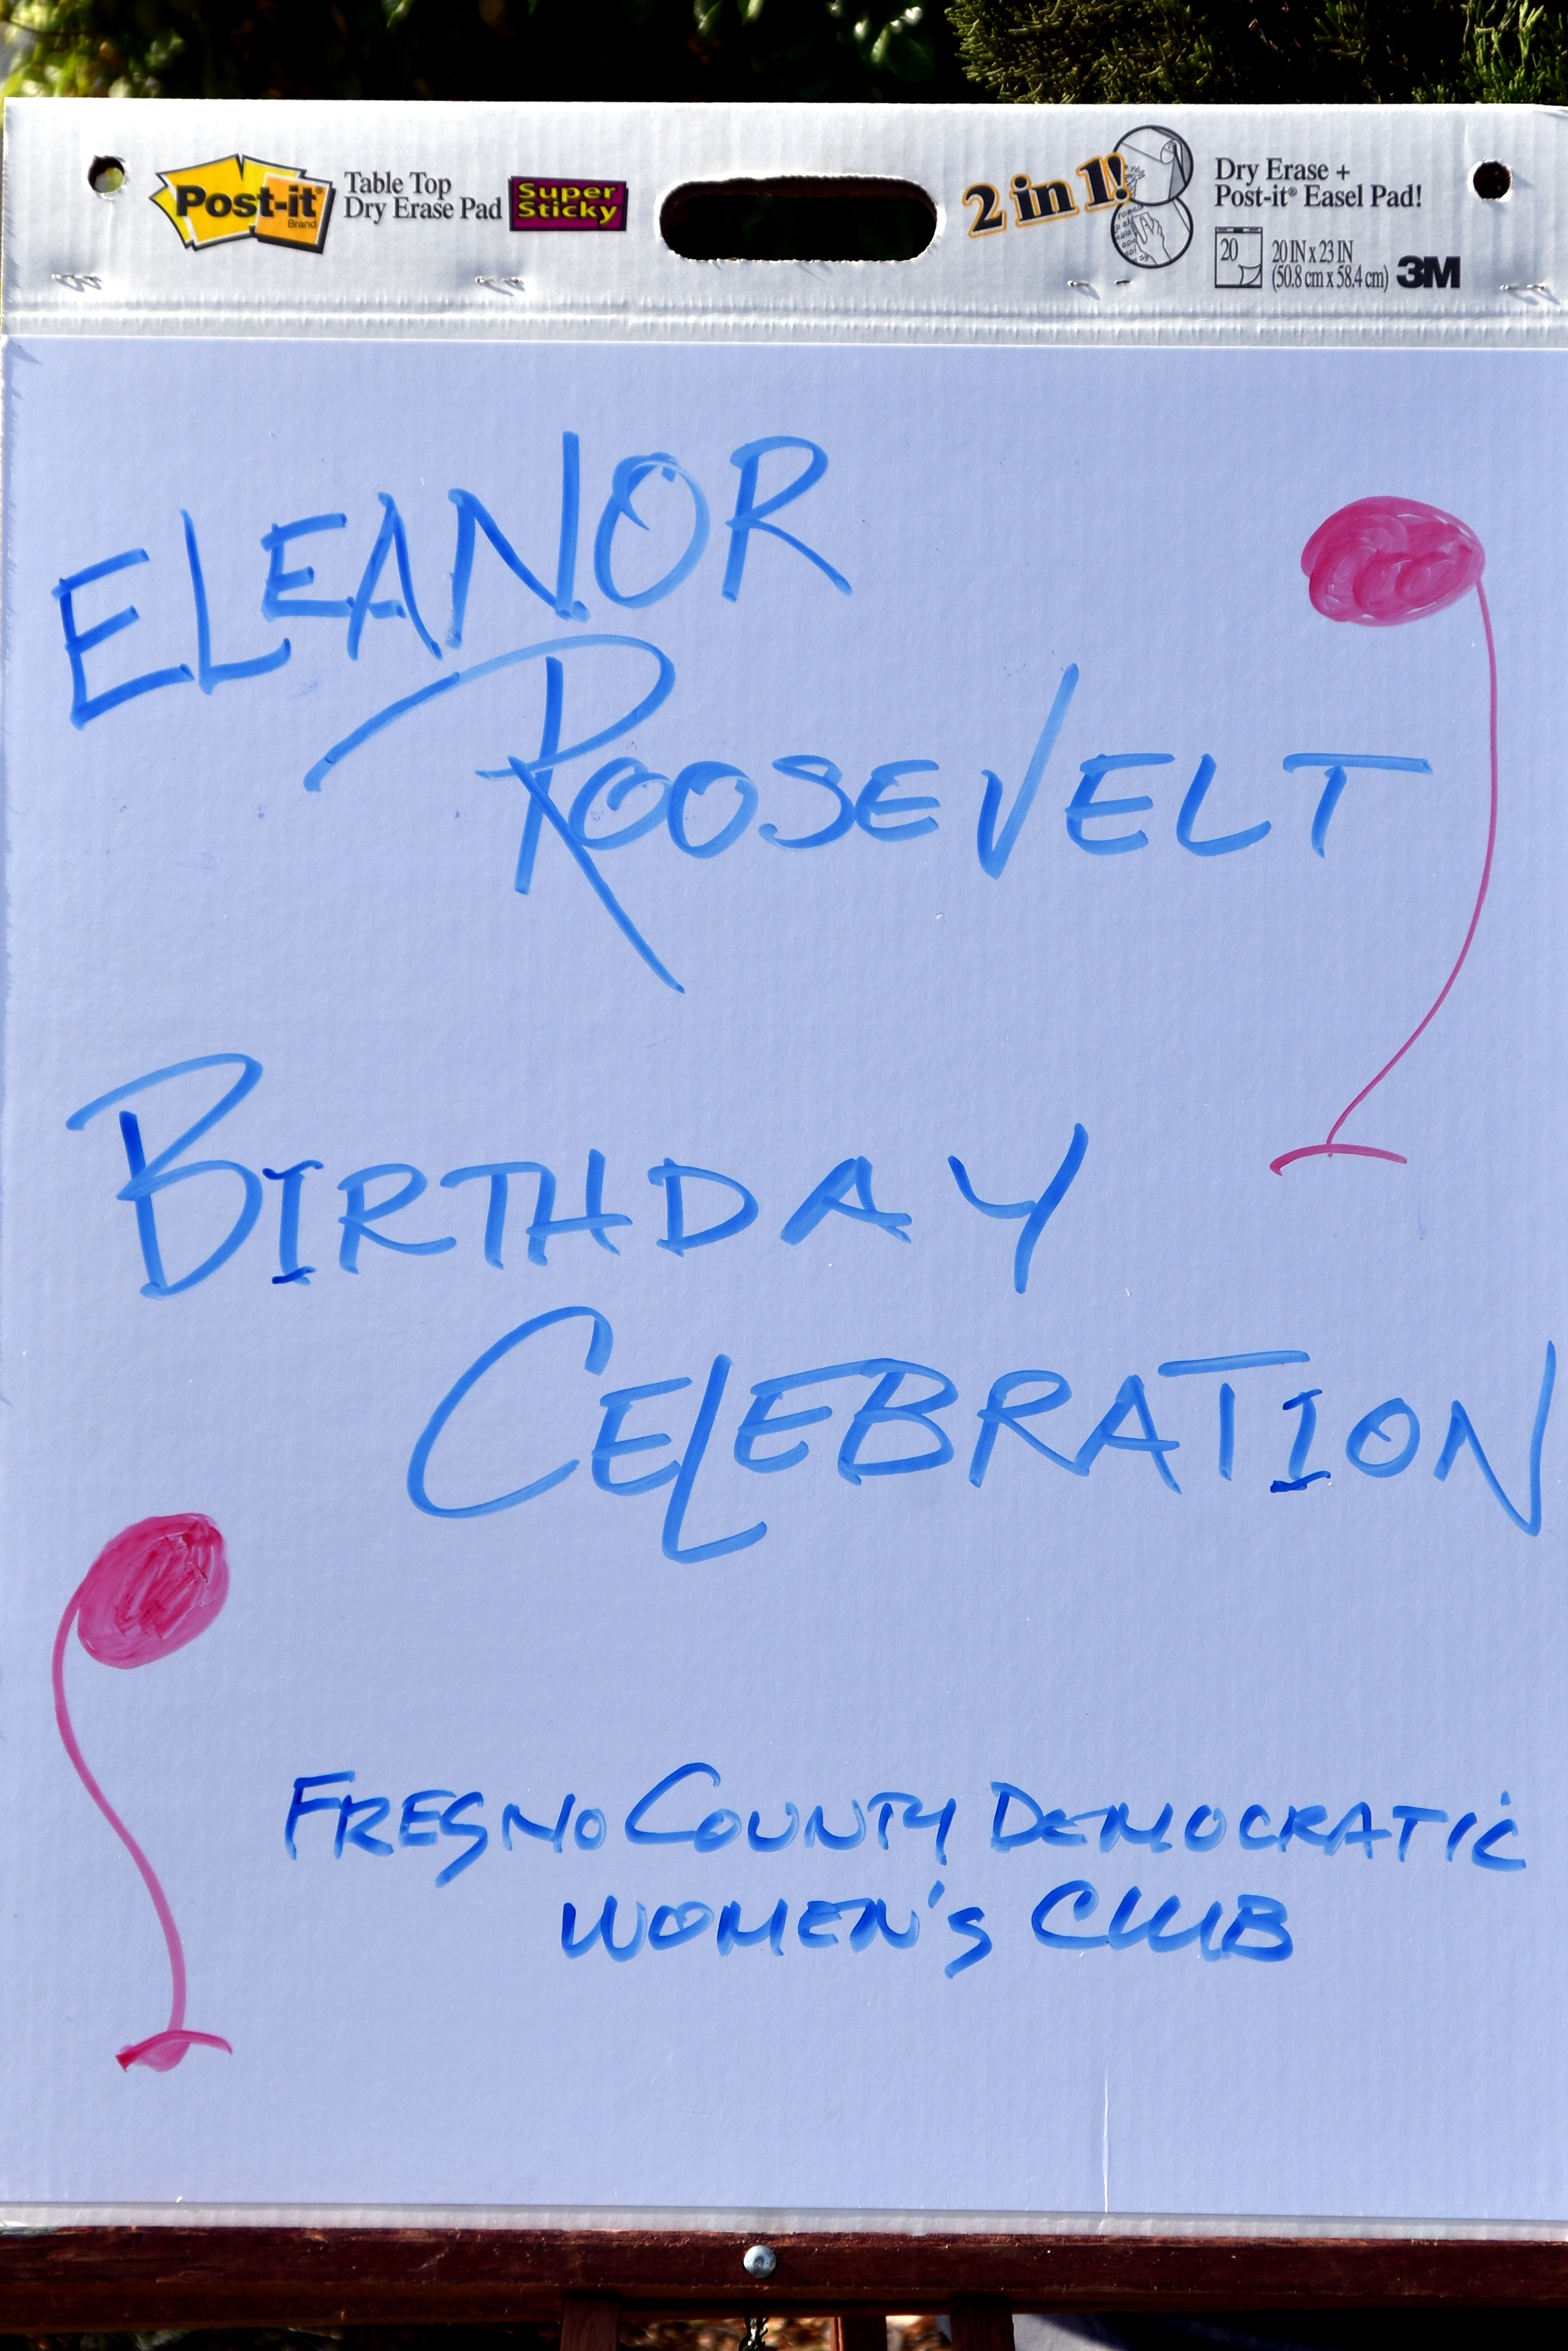 Post-it® Brand
Table Top
Dry Erase Pad
Super
Sticky
2 in 1!
Dry Erase +
Post-it® Easel Pad!
20
20 IN x 23 IN
(50.8 cm x 58.4 cm)
3M
ELEANOR
ROOSEVELT
BIRTHDAY
CELEBRATION
FRESNO COUNTY DEMOCRATIC
WOMEN'S CLUB